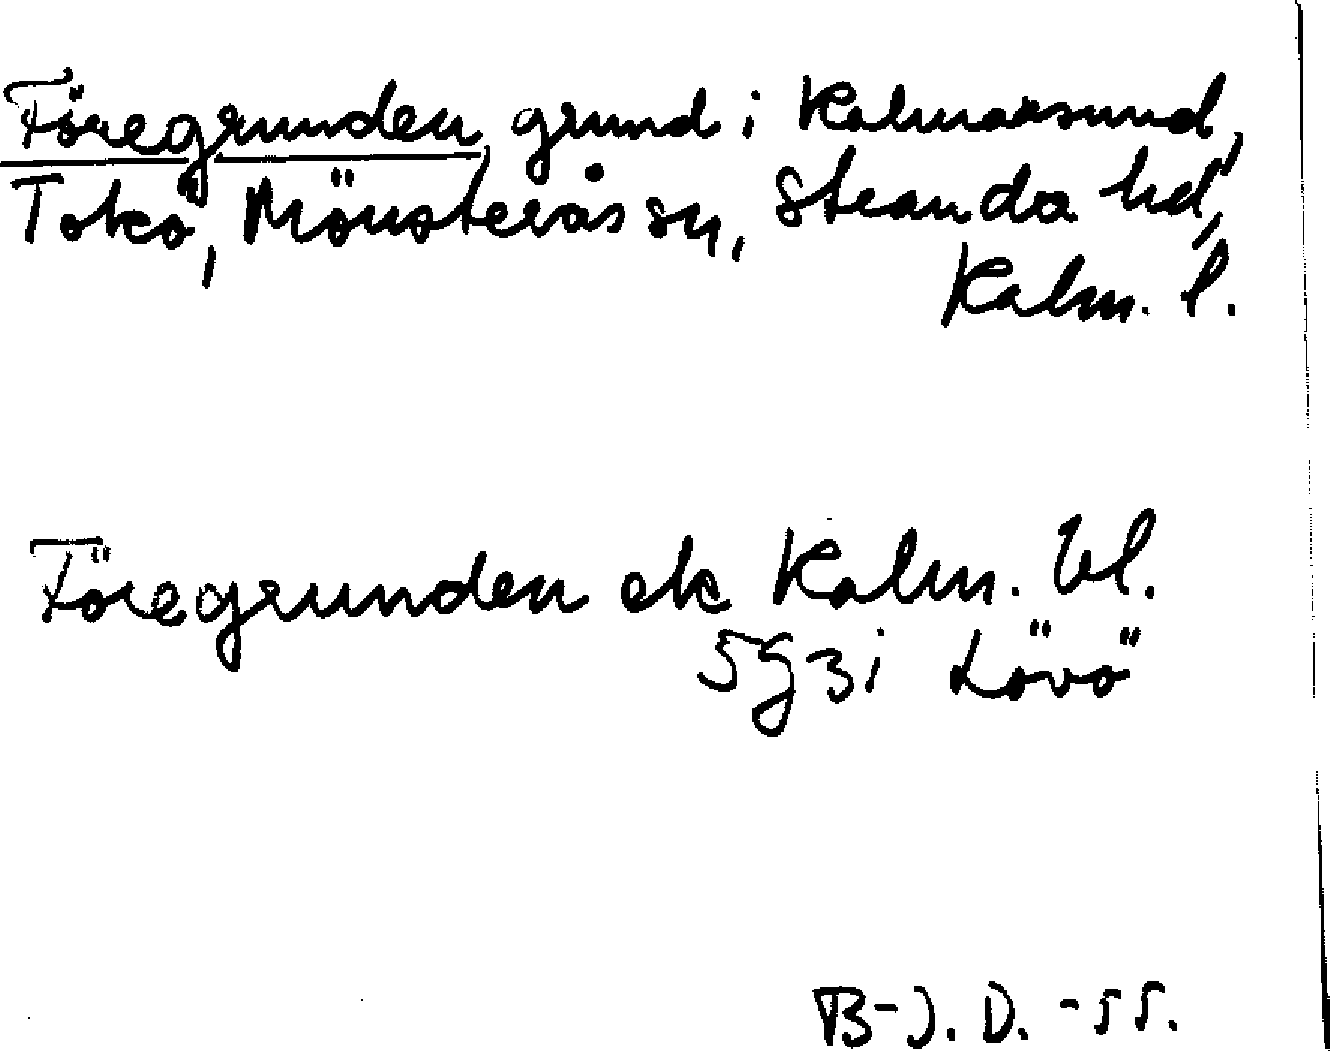 Föregrunden, grund i Kalmarsund,
Tokö, Mönsterås sn, Stranda hd,
Kalm. l.
Föregrunden ek Kalm. bl.
5g3i Lövö
B-J. D. -55.